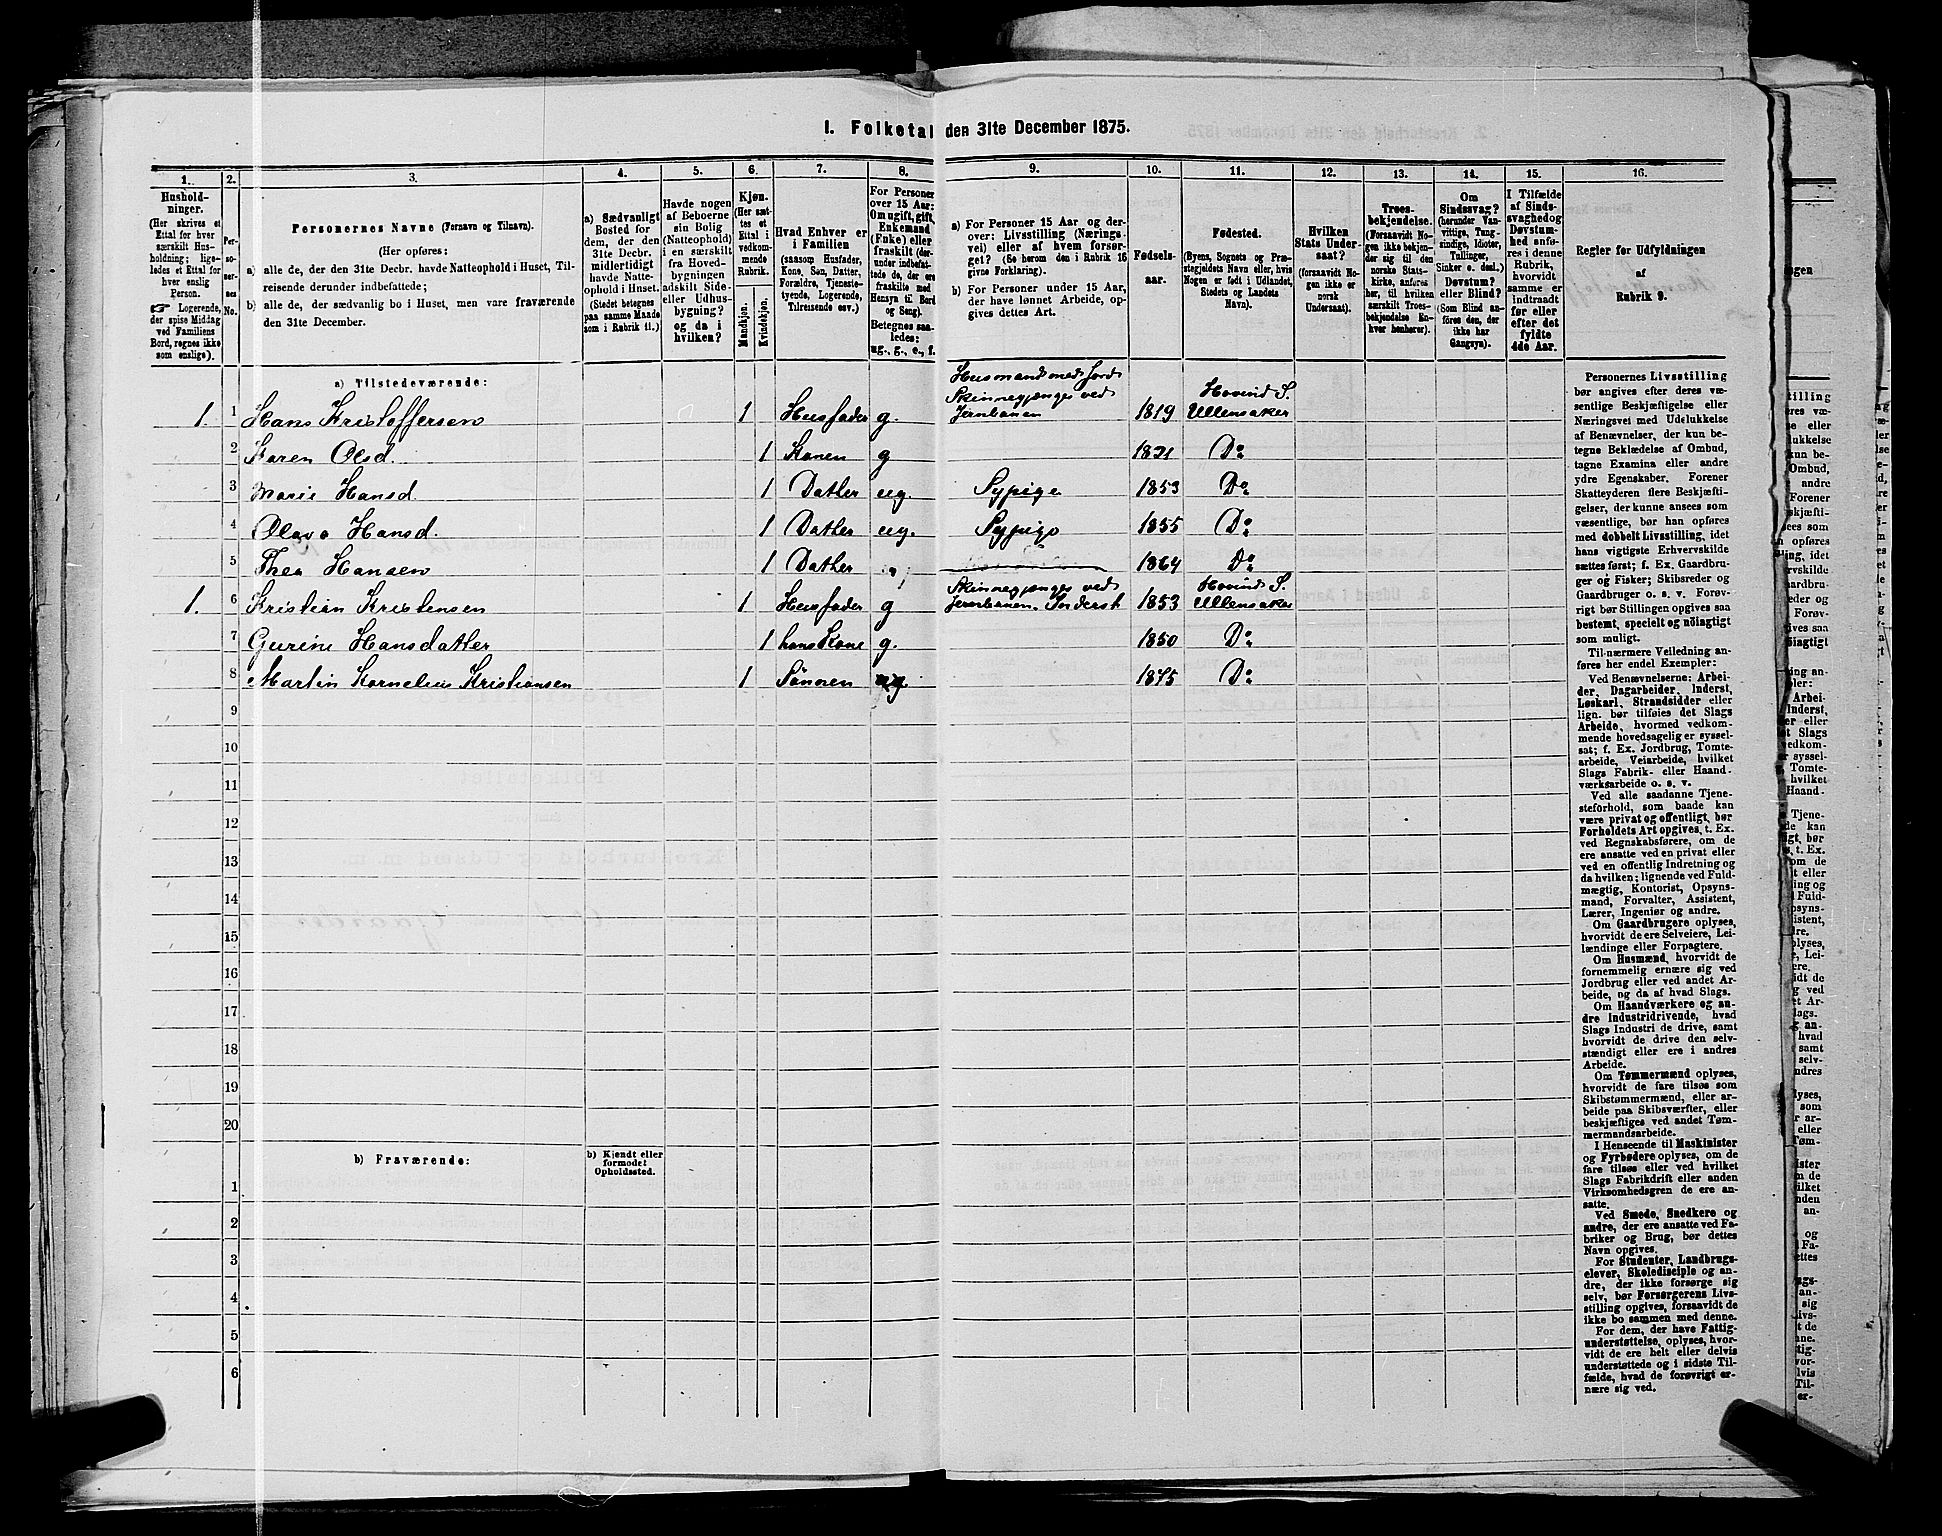 1. Folketal den 31te December 1875.
1.
2.
3.
4.
5.
6.
7.
8.
9.
10.
11.
12.
13.
14.
15.
16.
Hushold-
ninger.
(Her skrives et
Ettal for hver
særskilt Hus-
holdning; lige-
ledes et Ettal for
hver enslig
Person.
☞ Logerende,
der spise Middag
ved Familiens
Bord, regnes ikke
som enslige).
Per-
so-
ner-
nes
No.
Personernes Navne (Fornavn og Tilnavn).
(Her opføres:
a) alle de, der den 31te Decbr. havde Natteophold i Huset, Til-
reisende derunder indbefattede;
b) alle de, der sædvanlig bo i Huset, men vare fraværende
den 31te December.
a) Sædvanligt
Bosted for
dem, der den
31te Decbr.
midlertidigt
havde Natte-
ophold i Huset.
(Stedet betegnes
paa samme Maade
som i Rubrik 11.)
Havde nogen
af Beboerne
sin Bolig
(Natteophold)
i en særskilt
fra Hoved-
bygningen
adskilt Side-
eller Udhus-
bygning?
og da i
hvilken?
Kjøn.
(Her sæt-
tes et
Ettal i
vedkom-
mende
Rubrik.
Mandkjøn.
Kvindekjøn.
Hvad Enhver er
i Familien
(saasom Husfader,
Kone, Søn, Datter,
Forældre, Tjeneste-
tyende, Logerende,
Tilreisende osv.)
For Personer
over 15 Aar:
Om ugift, gift,
Enkemand
(Enke) eller
fraskilt (der-
under indbefat-
tede de, der ere
fraskilte med
Hensyn til Bord
og Seng).
Betegnes saa-
ledes:
ug., g., e., f.
a) For Personer 15 Aar og der-
over: Livsstilling (Nærings-
vei) eller af hvem forsør-
get? (Se herom den i Rubrik 16
givne Forklaring).
b) For Personer under 15 Aar,
der have lønnet Arbeide, op-
gives dettes Art.
Fødsels-
aar.
Fødested.
(Byens, Sognets og Præ-
stegjeldets Navn eller, hvis
Nogen er født i Udlandet,
Stedets og Landets
Navn).
Hvilken
Stats Under-
saat?
(forsaavidt No-
gen ikke er
norsk
Undersaat).
Troes-
bekjendelse.
(Forsaavidt No-
gen ikke bekjen-
der sig til den
norske Stats-
kirke, anføres
her, til hvilken
særskilt Troes-
bekjendelse En-
hver henhører).
Om
Sindssvag?
(herunder Van-
vittige, Tung-
sindige, Idioter,
Tullinger,
Sinker o. desl.)
Døvstum?
eller Blind?
(Som Blind an-
føres den, der
ikke har
Gangsyn).
I Tilfælde
af Sinds-
svaghed og
Døvstum-
hed anfø-
res i denne
Rubrik,
hvorvidt
samme er
indtraadt
før eller
efter det
fyldte
4de Aar.
Regler for Udfyldningen
af
Rubrik 9.
a) Tilstedeværende:
1. 1 Hans Kristoffersen 1 Husfader g. Husmand med Jord Skinnegjænger ved Jernbanen 1819 Hovind S. Ullensaker
2 Karen Olsd. 1 Konen g 1821 Do
3 Marie Hansd. 1 Datter ug. Sypige 1853 Do
4 Olava Hansd. 1 Datter ug. Sypige 1855 Do
5 Thea Hansen 1 Datter 1864 Do
1. 6 Kristian Kristensen 1 Husfader g Skinnegjænger ved Jernbanen. Inderst 1853 Hovind S. Ullensaker
7 Gurine Hansdatter 1 hans Kone g. 1850 Do
8 Martin Kornelius Kristiansen 1 Sønnen ug. 1875 Do
9
10
11
12
13
14
15
16
17
18
19
20
b) Fraværende:
b) Kjendt eller
formodet
Opholdssted.
1
2
3
4
5
6
Personernes Livsstilling
bør angives efter deres væ-
sentlige Beskjæftigelse eller
Næringsvei med Udelukkelse
af Benævnelser, der kun be-
tegne Beklædelse af Ombud,
tagne Examina eller andre
ydre Egenskaber. Forener
Skatteyderen flere Beskjæfti-
gelser, der kunne ansees som
væsentlige, bør han opføres
med dobbelt Livsstilling, idet
hans vigtigste Erhvervskilde
sættes først; f. Ex. Gaardbru-
ger og Fisker; Skibsreder og
Gaardbruger o. s. v. Forøv-
rigt bør Stillingen opgives saa
bestemt, specielt og nöiagtigt
som muligt.
Til nærmere Veiledning an-
føres her endel Exempler:
Ved Benævnelserne: Arbei-
der, Dagarbeider, Inderst,
Løskarl, Strandsidder eller
lign. bør tilføies det Slags
Arbeide, hvormed vedkom-
mende hovedsagelig er syssel-
sat; f. Ex. Jordbrug, Tomte-
arbeide, Veiarbeide, hvilket
Slags Fabrik- eller Haand-
værksarbeide o. s. v.
Ved alle saadanne Tjene-
steforhold, som baade kan
være privat og offentligt, bør
Forholdets Art opgives, t. Ex.
ved Regnskabsførere, om de
ere ansatte ved en privat eller
ved en offentlig Indretning og
da hvilken; lignende ved Fuld-
mægtig, Kontorist, Opsyns-
mand, Forvalter, Assistent,
Lærer, Ingeniør og andre.
Om Gaardbrugere oplyses,
hvorvidt de ere Selveiere, Lei-
lændinge eller Forpagtere.
Om Husmænd, hvorvidt de
fornemmelig ernære sig ved
Jordbrug eller ved andet Ar-
beide, og da af hvad Slags.
Om Haandværkere og an-
dre Industridrivende, hvad
Slags Industri de drive, samt
hvorvidt de drive den selv-
stændigt eller ere i andres
Arbeide.
Om Tømmermænd oplyses,
hvorvidt de fare tilsøs som
Skibstømmermænd, eller ar-
beide paa Skibsværfter, eller
beskjæftiges ved andet Tøm-
mermandsarbeide.
I Henseende til Maskinister
og Fyrbødere oplyses, om de
fare tilsøs eller ved hvilket
Slags Fabrikdrift eller anden
Virksomhedsgren de ere an-
satte.
Ved Smede, Snedkere og
andre, der ere ansatte ved Fa-
briker og Brug, bør dettes
Navn opgives.
For Studenter, Landbrugs-
elever, Skoledisciple og an-
dre, der ikke forsørge sig
selv, bør Forsørgerens Livs-
stilling opgives, forsaavidt de
ikke bo sammen med denne.
For dem, der have Fattig-
understøttelse, oplyses, hvor-
vidt de ere helt eller delvis
understøttede og i sidste Til-
fælde, hvad de forøvrigt er-
nære sig ved.